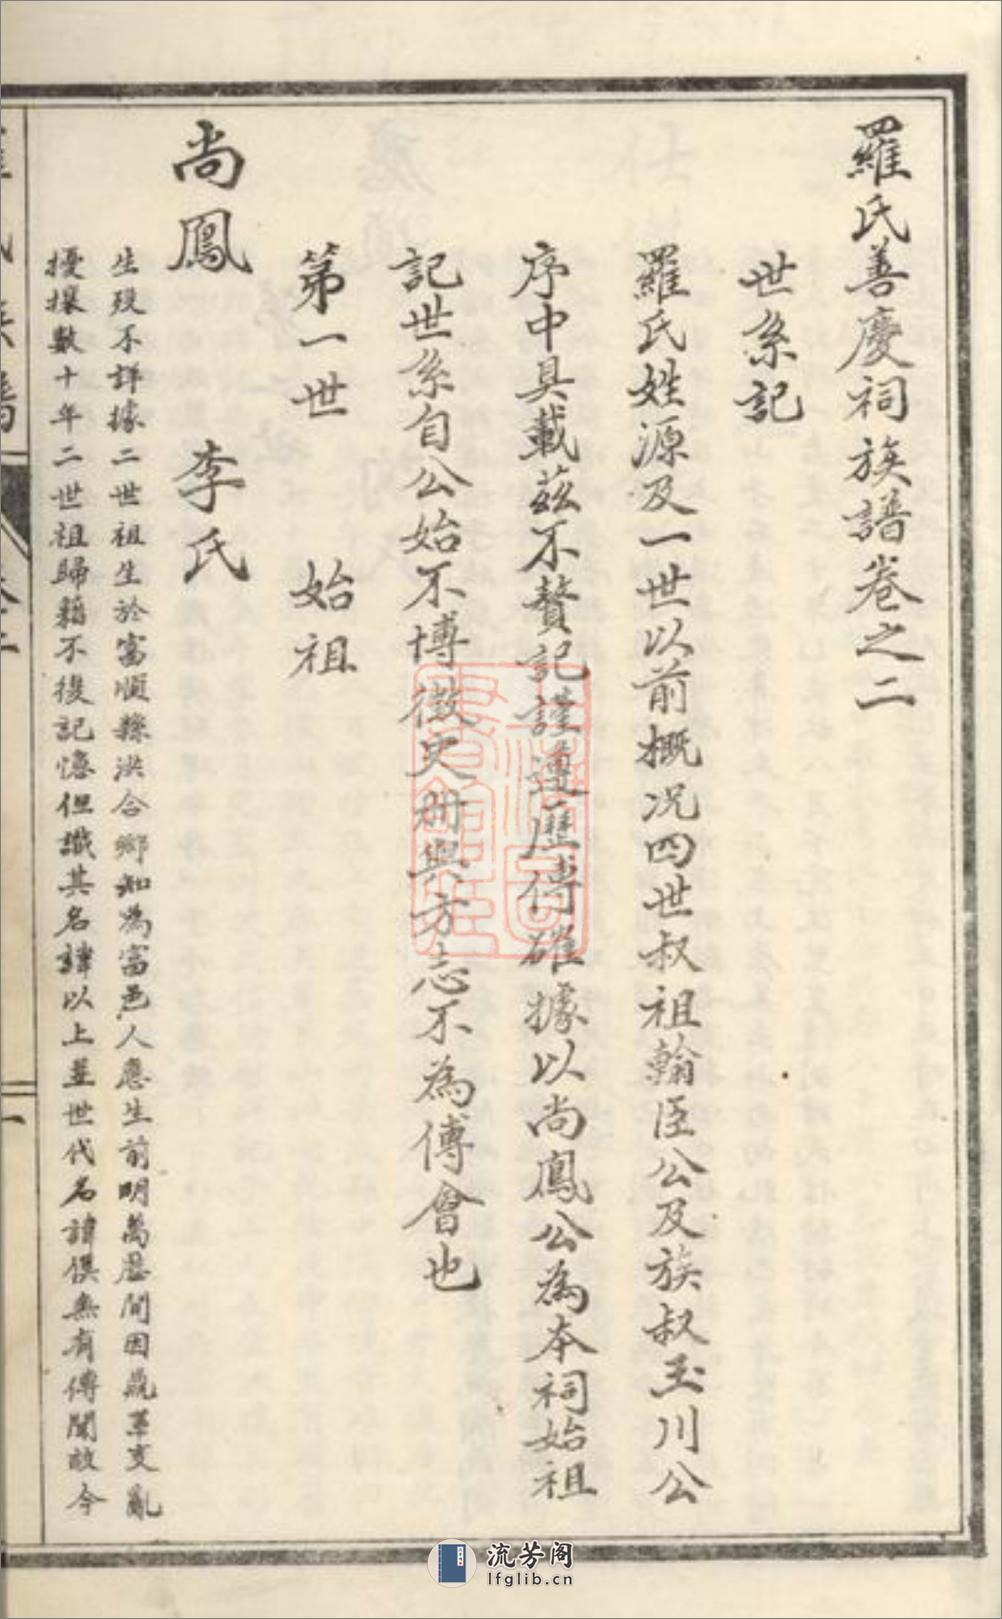 羅氏善慶祠族譜卷之二
世系記
羅氏姓源及一世以前概况四世叔祖翰臣公及族叔玉川公
序中具載茲不贅記謹遵歷傳確據以尚鳳公為本祠始祖
記世系自公始不博徵史册與方志不為傅會也
第一世 始祖
尚鳳 李氏
生歿不詳據二世祖生於富順縣洪合鄉知為富邑人應生前明萬歷間因鼎革变亂
擾攘數十年二世祖歸籍不復記憶但識其名諱以上並世代名諱俱無有傳聞故今
流芳阁
lfglib.cn